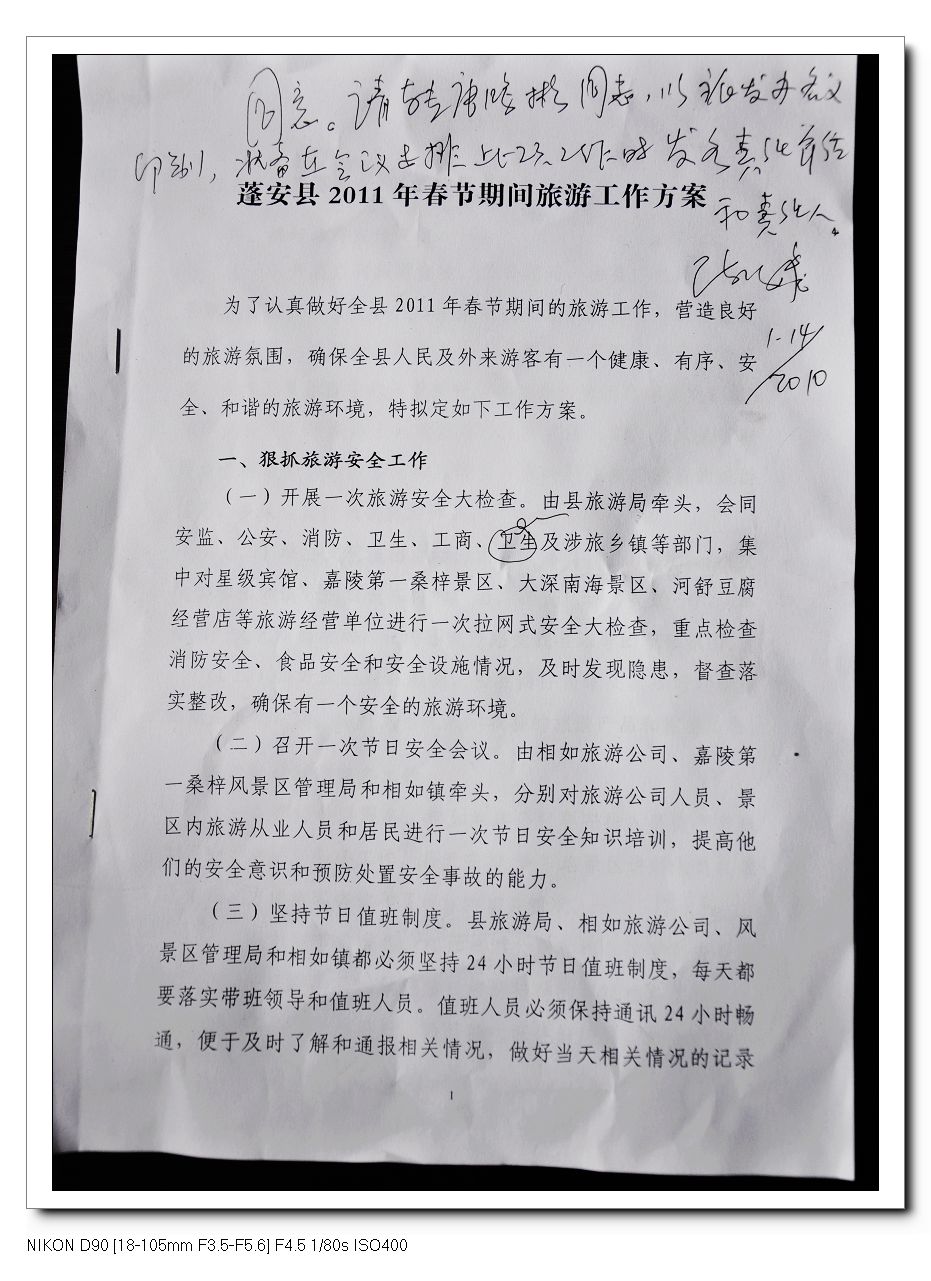 同意。请转唐晓彬同志,以
印制,准备在会议
蓬安县2011年春节期间旅游工作方案
和责任人。
1.14/2010
为了认真做好全县2011年春节期间的旅游工作,营造良好
的旅游氛围,确保全县人民及外来游客有一个健康、有序、安
全、和谐的旅游环境,特拟定如下工作方案。
一、狠抓旅游安全工作
(一)开展一次旅游安全大检查。由县旅游局牵头,会同
安监、公安、消防、卫生、工商、卫生及涉旅乡镇等部门,集
中对星级宾馆、嘉陵第一桑梓景区、大深南海景区、河舒豆腐
经营店等旅游经营单位进行一次拉网式安全大检查,重点检查
消防安全、食品安全和安全设施情况,及时发现隐患,督查落
实整改,确保有一个安全的旅游环境。
(二)召开一次节日安全会议。由相如旅游公司、嘉陵第
一桑梓风景区管理局和相如镇牵头,分别对旅游公司人员、景
区内旅游从业人员和居民进行一次节日安全知识培训,提高他
们的安全意识和预防处置安全事故的能力。
(三)坚持节日值班制度。县旅游局、相如旅游公司、风
景区管理局和相如镇都必须坚持24小时节日值班制度,每天都
要落实带班领导和值班人员。值班人员必须保持通讯24小时畅
通,便于及时了解和通报相关情况,做好当天相关情况的记录
1
NIKON D90 [18-105mm F3.5-F5.6] F4.5 1/80s ISO400